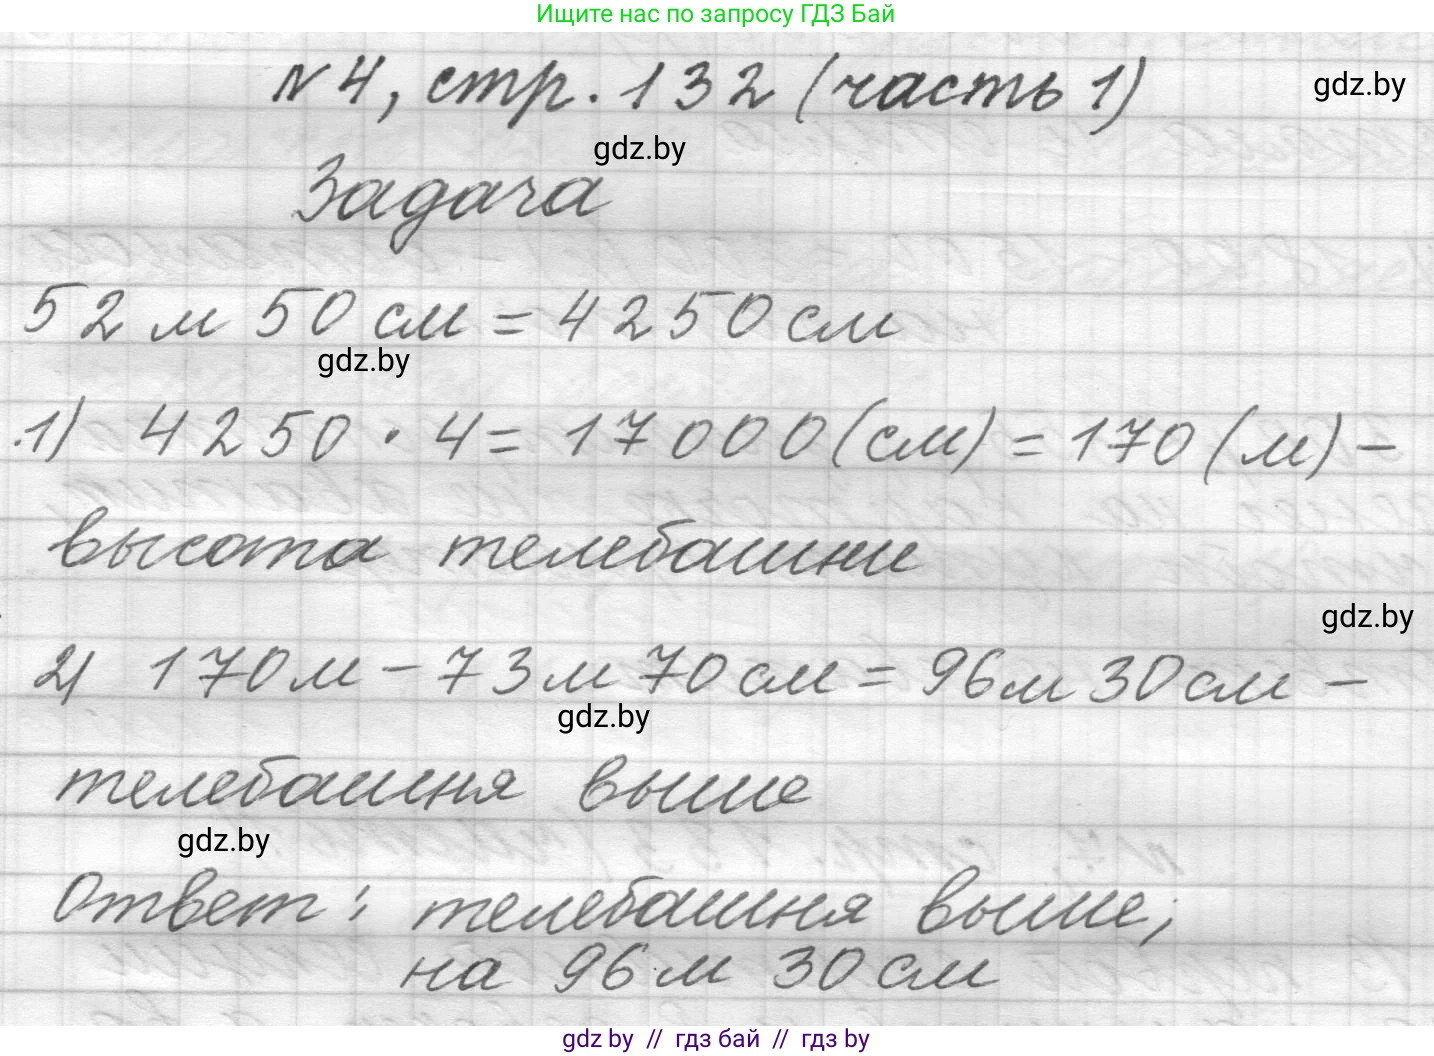 Ищите нас по запросу ГДЗ Бай
№4, стр. 132 (часть 1)
gdz.by
gdz.by
Задача
52 м 50 см = 4250 см
gdz.by
1) 4250 · 4 = 17000 (см) = 170 (м) –
высота телебашни
gdz.by
2) 170 м – 73 м 70 см = 96 м 30 см –
gdz.by
телебашня выше
gdz.by
Ответ: телебашня выше;
на 96 м 30 см
gdz.by // гдз бай // гдз by